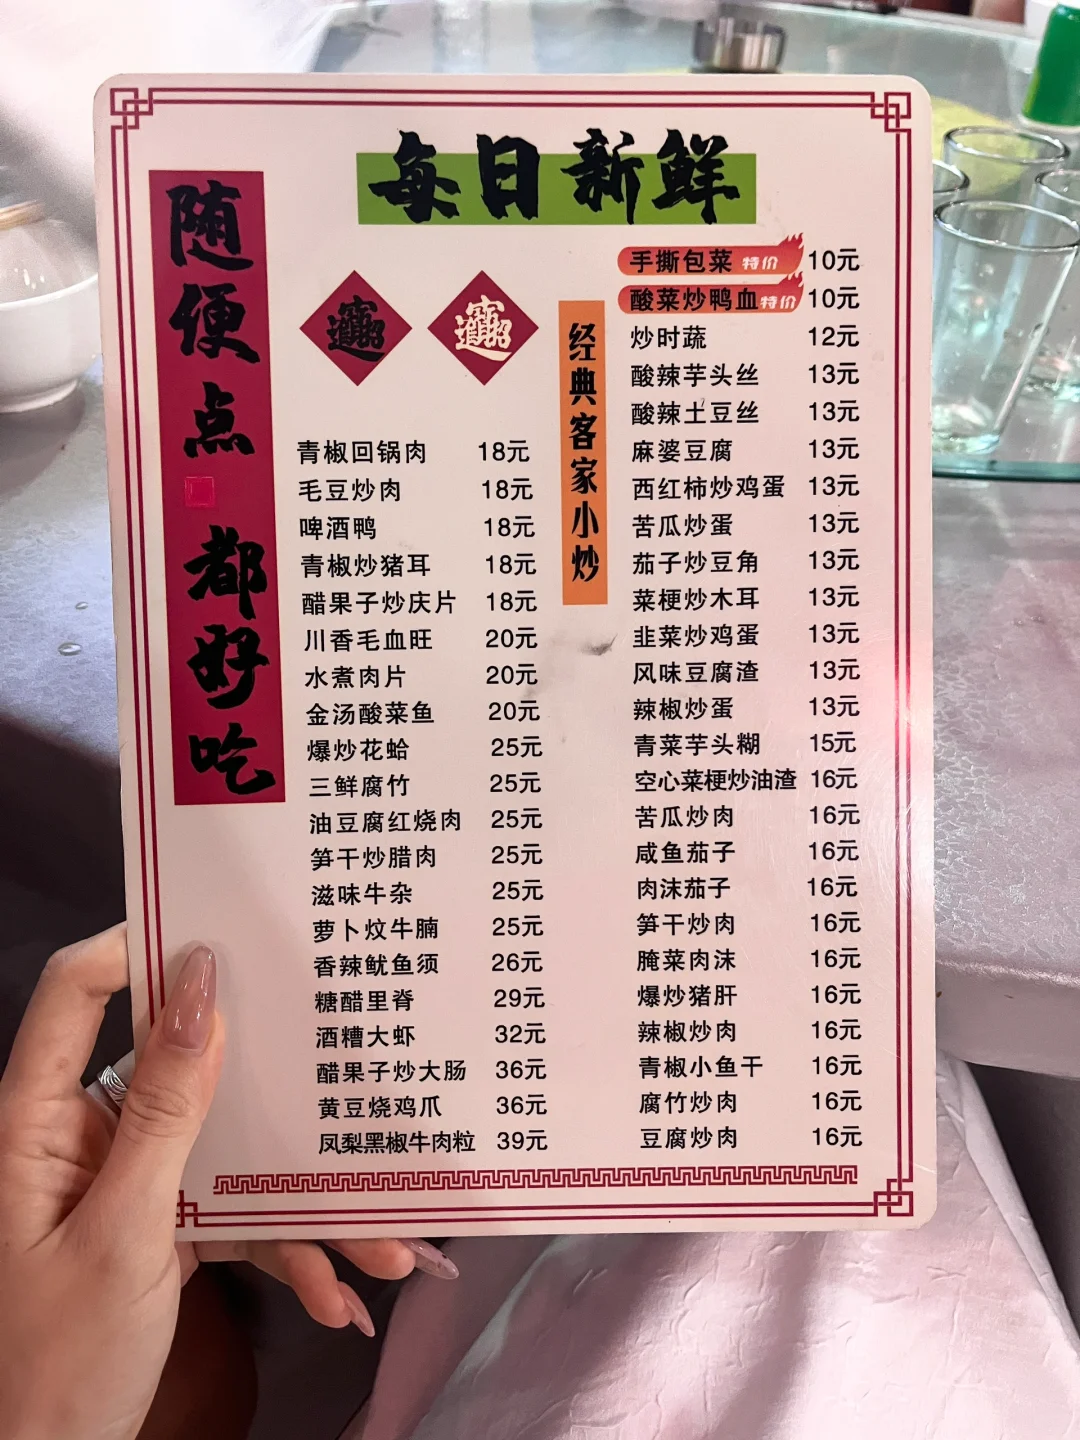 每日新鲜
随便点
都好吃
招财进宝
招财进宝
经典客家小炒
青椒回锅肉 18元
毛豆炒肉 18元
啤酒鸭 18元
青椒炒猪耳 18元
醋果子炒庆片 18元
川香毛血旺 20元
水煮肉片 20元
金汤酸菜鱼 20元
爆炒花蛤 25元
三鲜腐竹 25元
油豆腐红烧肉 25元
笋干炒腊肉 25元
滋味牛杂 25元
萝卜炆牛腩 25元
香辣鱿鱼须 26元
糖醋里脊 29元
酒糟大虾 32元
醋果子炒大肠 36元
黄豆烧鸡爪 36元
凤梨黑椒牛肉粒 39元
手撕包菜 特价 10元
酸菜炒鸭血 特价 10元
炒时蔬 12元
酸辣芋头丝 13元
酸辣土豆丝 13元
麻婆豆腐 13元
西红柿炒鸡蛋 13元
苦瓜炒蛋 13元
茄子炒豆角 13元
菜梗炒木耳 13元
韭菜炒鸡蛋 13元
风味豆腐渣 13元
辣椒炒蛋 13元
青菜芋头糊 15元
空心菜梗炒油渣 16元
苦瓜炒肉 16元
咸鱼茄子 16元
肉沫茄子 16元
笋干炒肉 16元
腌菜肉沫 16元
爆炒猪肝 16元
辣椒炒肉 16元
青椒小鱼干 16元
腐竹炒肉 16元
豆腐炒肉 16元